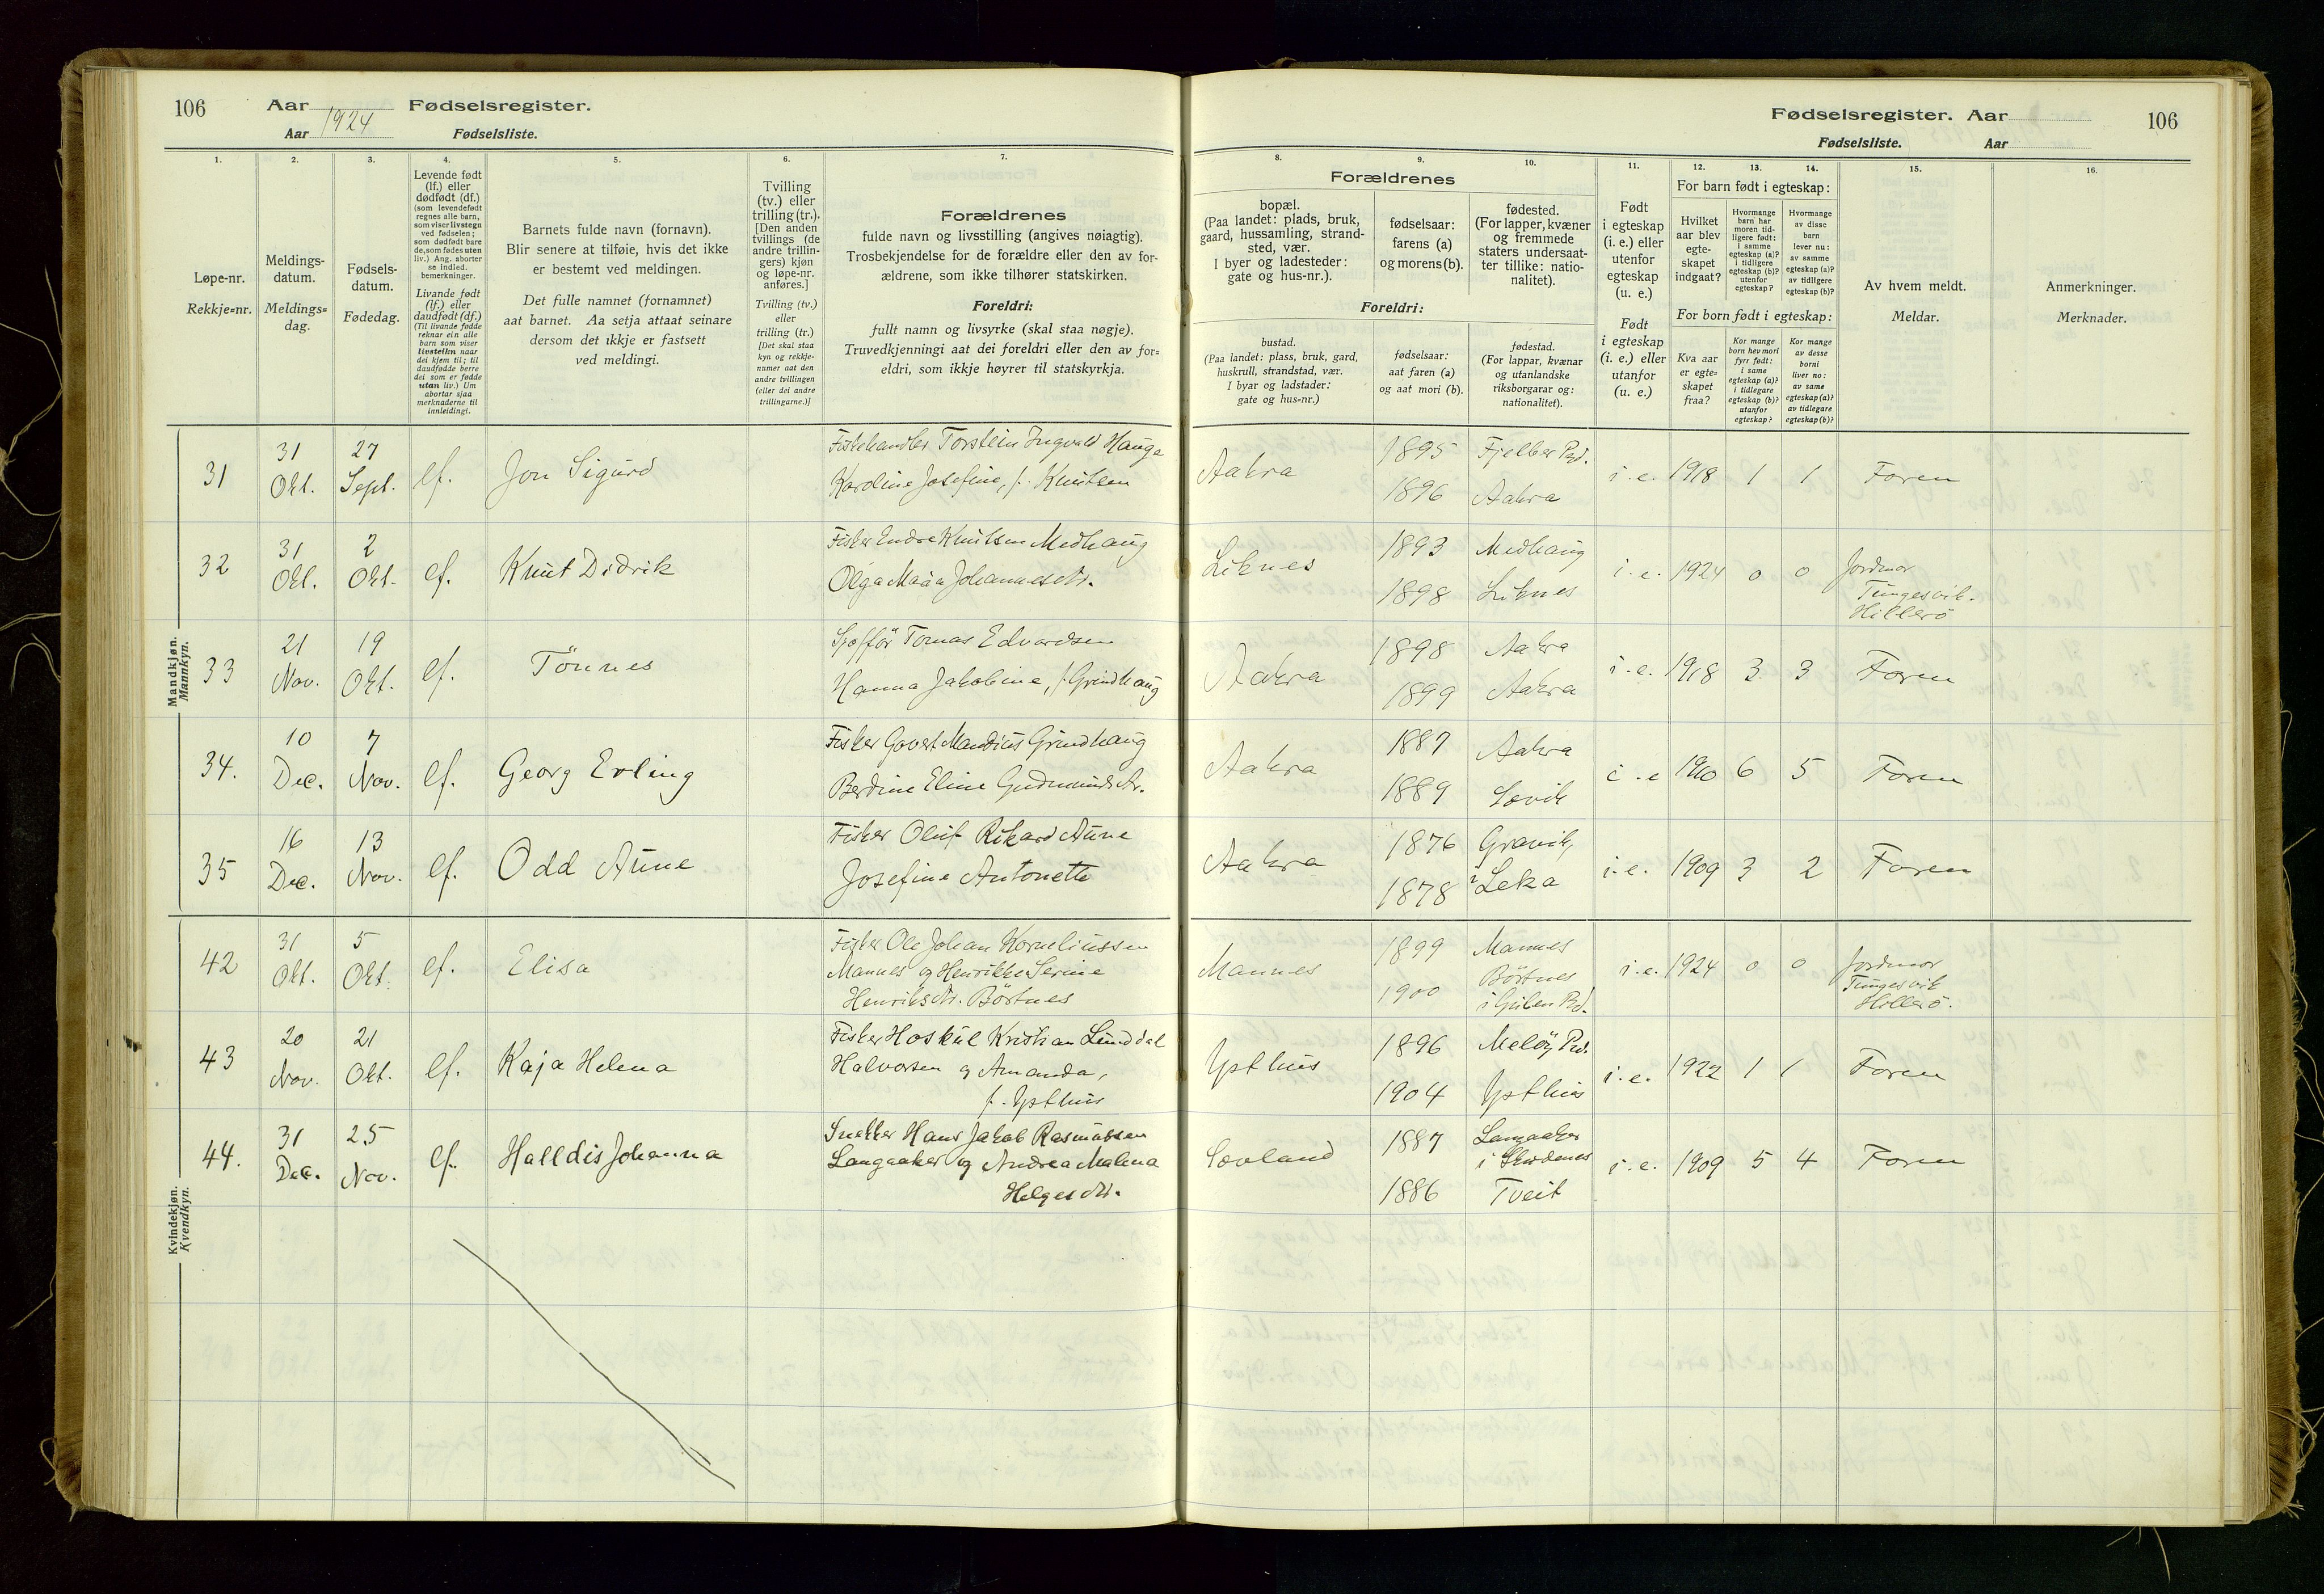 106 Aar Fødselsregister.
Aar 1924 Fødselsliste.
Fødselsregister. Aar 106
Fødselsliste. Aar
1. 2. 3. 4. 5. 6. 7. 8. 9. 10. 11. 12. 13. 14. 15. 16.
Løpe-nr.
Rekkje=nr.
Meldings-
datum.
Meldings=
dag.
Fødsels-
datum.
Fødedag.
Levende født
(lf.) eller
dødfødt (df.)
(som levendefødt
regnes alle barn,
som viser livstegn
ved fødselen;
som dødfødt bare
de, som fødes uten
liv.) Ang. aborter
se indled.
bemerkninger.
Livande født
(lf.) eller
daudfødt (df.)
(Til livande fødde
reknar ein alle
barn som viser
livsteikn naar
dei kjem til; til
daudfødde berre
dei som er fødde
utan liv.) Um
abortar sjaa
merknaderne til
innleidingi.
Barnets fulde navn (fornavn).
Blir senere at tilføie, hvis det ikke
er bestemt ved meldingen.
Det fulle namnet (fornamnet)
aat barnet. Aa setja attaat seinare
dersom det ikkje er fastsett
ved meldingi.
Tvilling
(tv.) eller
trilling (tr.).
[Den anden
tvillings (de
andre trillin-
gers) kjøn
og løpe-nr.
anføres.]
Tvilling (tv.)
eller
trilling (tr.)
[Det skal staa
kyn og rekkje-
numer aat den
andre tvillingen
(eller dei andre
trillingarne.)]
Forældrenes
fulde navn og livsstilling (angives nøiagtig).
Trosbekjendelse for de forældre eller den av for-
ældrene, som ikke tilhører statskirken.
Foreldri:
fullt namn og livsyrke (skal staa nøgje).
Truvedkjenningi aat dei foreldri eller den av for=
eldri, som ikkje høyrer til statskyrkja.
Forældrenes
bopæl.
(Paa landet: plads, bruk,
gaard, hussamling, strand-
sted, vær.
I byer og ladesteder:
gate og hus-nr.).
fødselsaar:
farens (a)
og morens (b).
fødested.
(For lapper, kvæner
og fremmede
staters undersaat-
ter tillike: natio-
nalitet).
Foreldri:
bustad.
(Paa landet: plass, bruk, gard,
huskrull, strandstad, vær.
I byar og ladstader:
gate og hus=nr.)
fødselsaar:
aat faren (a)
og aat mori (b).
fødestad.
(For lappar, kvænar
og utanlandske
riksborgarar og:
nationalitet).
Født
i egteskap
(i. e.) eller
utenfor
egteskap
(u. e.)
Født
i egteskap
(i. e.) eller
utanfor
(u. e.)
For barn født i egteskap:
Hvilket
aar blev
egte-
skapet
indgaat?
Hvormange
barn har
moren tid-
ligere født:
i samme
egteskap (a)?
i tidligere
egteskap (b)?
utenfor
egteskap?
Hvormange
av disse
barn
lever nu:
av samme
egteskap (a)?
av tidligere
egteskap (b)?
For born født i egteskap:
Kva aar
er egte=
skapet
fraa?
Kor mange
born hev mori
fyrr født:
i same
egteskap (a)?
i tidlegare
egteskap (b)?
utanfor
egteskap?
Kor mange
av desse
borni
liver no:
av same
egteskap (a)?
av tidlegare
egteskap (b)?
Av hvem meldt.
Meldar.
Anmerkninger.
Merknader.
Mandkjøn.
Mannkyn.
31 31 Okt. 27 Sept. lf. Jon Sigurd Fiskehandler Torstein Ingvald Hauge
Karoline Josefine, f. Knutsen
Aakra 1895 Fjelber Prd.
1896 Aakra
i.e. 1918 1 1 Faren
32 31 Okt. 2 Okt. lf. Knut Didrik Fisker Endre Knutsen Medhaug
Olga Maria Johannesdtr.
Liknes 1893 Medhaug
1898 Liknes
i.e. 1924 0 0 Jordmor
Tungesvik.
Hillerö
33 21 Nov. 19 Okt. lf. Tönnes Sjofför Tomas Edvardsen
Hanna Jakobine, f. Grindhaug
Aakra 1898 Aakra
1899 Aakra
i.e. 1918 3 3 Faren
34. 10 Dec. 7 Nov. lf. Georg Erling Fisker Govert Mandius Grindhaug
Berdine Eline Gudmundsdtr.
Aakra 1887 Aakra
1889 Sævik
i.e 1910 6 5 Faren
35 16 Dec. 13 Nov. lf. Odd Aune Fisker Oluf Rikard Aune
Josefine Antonette
Aakra 1876 Gravik,
1878 i Leka
i.e. 1909 3 2 Faren
Kvindekjøn.
Kvendkyn.
42 31 Okt. 5 Okt. lf. Elisa Fisker Ole Johan Korneliussen
Mannes og Henrikke Serine
Henriksdtr. Börtnes
Mannes 1899 Mannes
1900 Börtnes
i Gulen Prd.
i.e. 1924 0 0 Jordmor
Tungesvik
Hillerö.
43 20 Nov. 21 Okt. lf. Kaja Helena Fisker Hoskul Kristian Lunddal
Halvorsen og Amanda,
f. Ypsthus
Ypsthus 1896 Melöy Prd.
1904 Ypsthus
i.e. 1922 1 1 Faren
44. 31 Dec. 25 Nov. lf. Halldis Johanna Snekker Hans Jakob Rasmussen
Langaaker og Andrea Malena
Helgesdtr.
Sævland 1887 Langaaker
i Skudenes
1886 Tveit
i.e. 1909 5 4 Faren